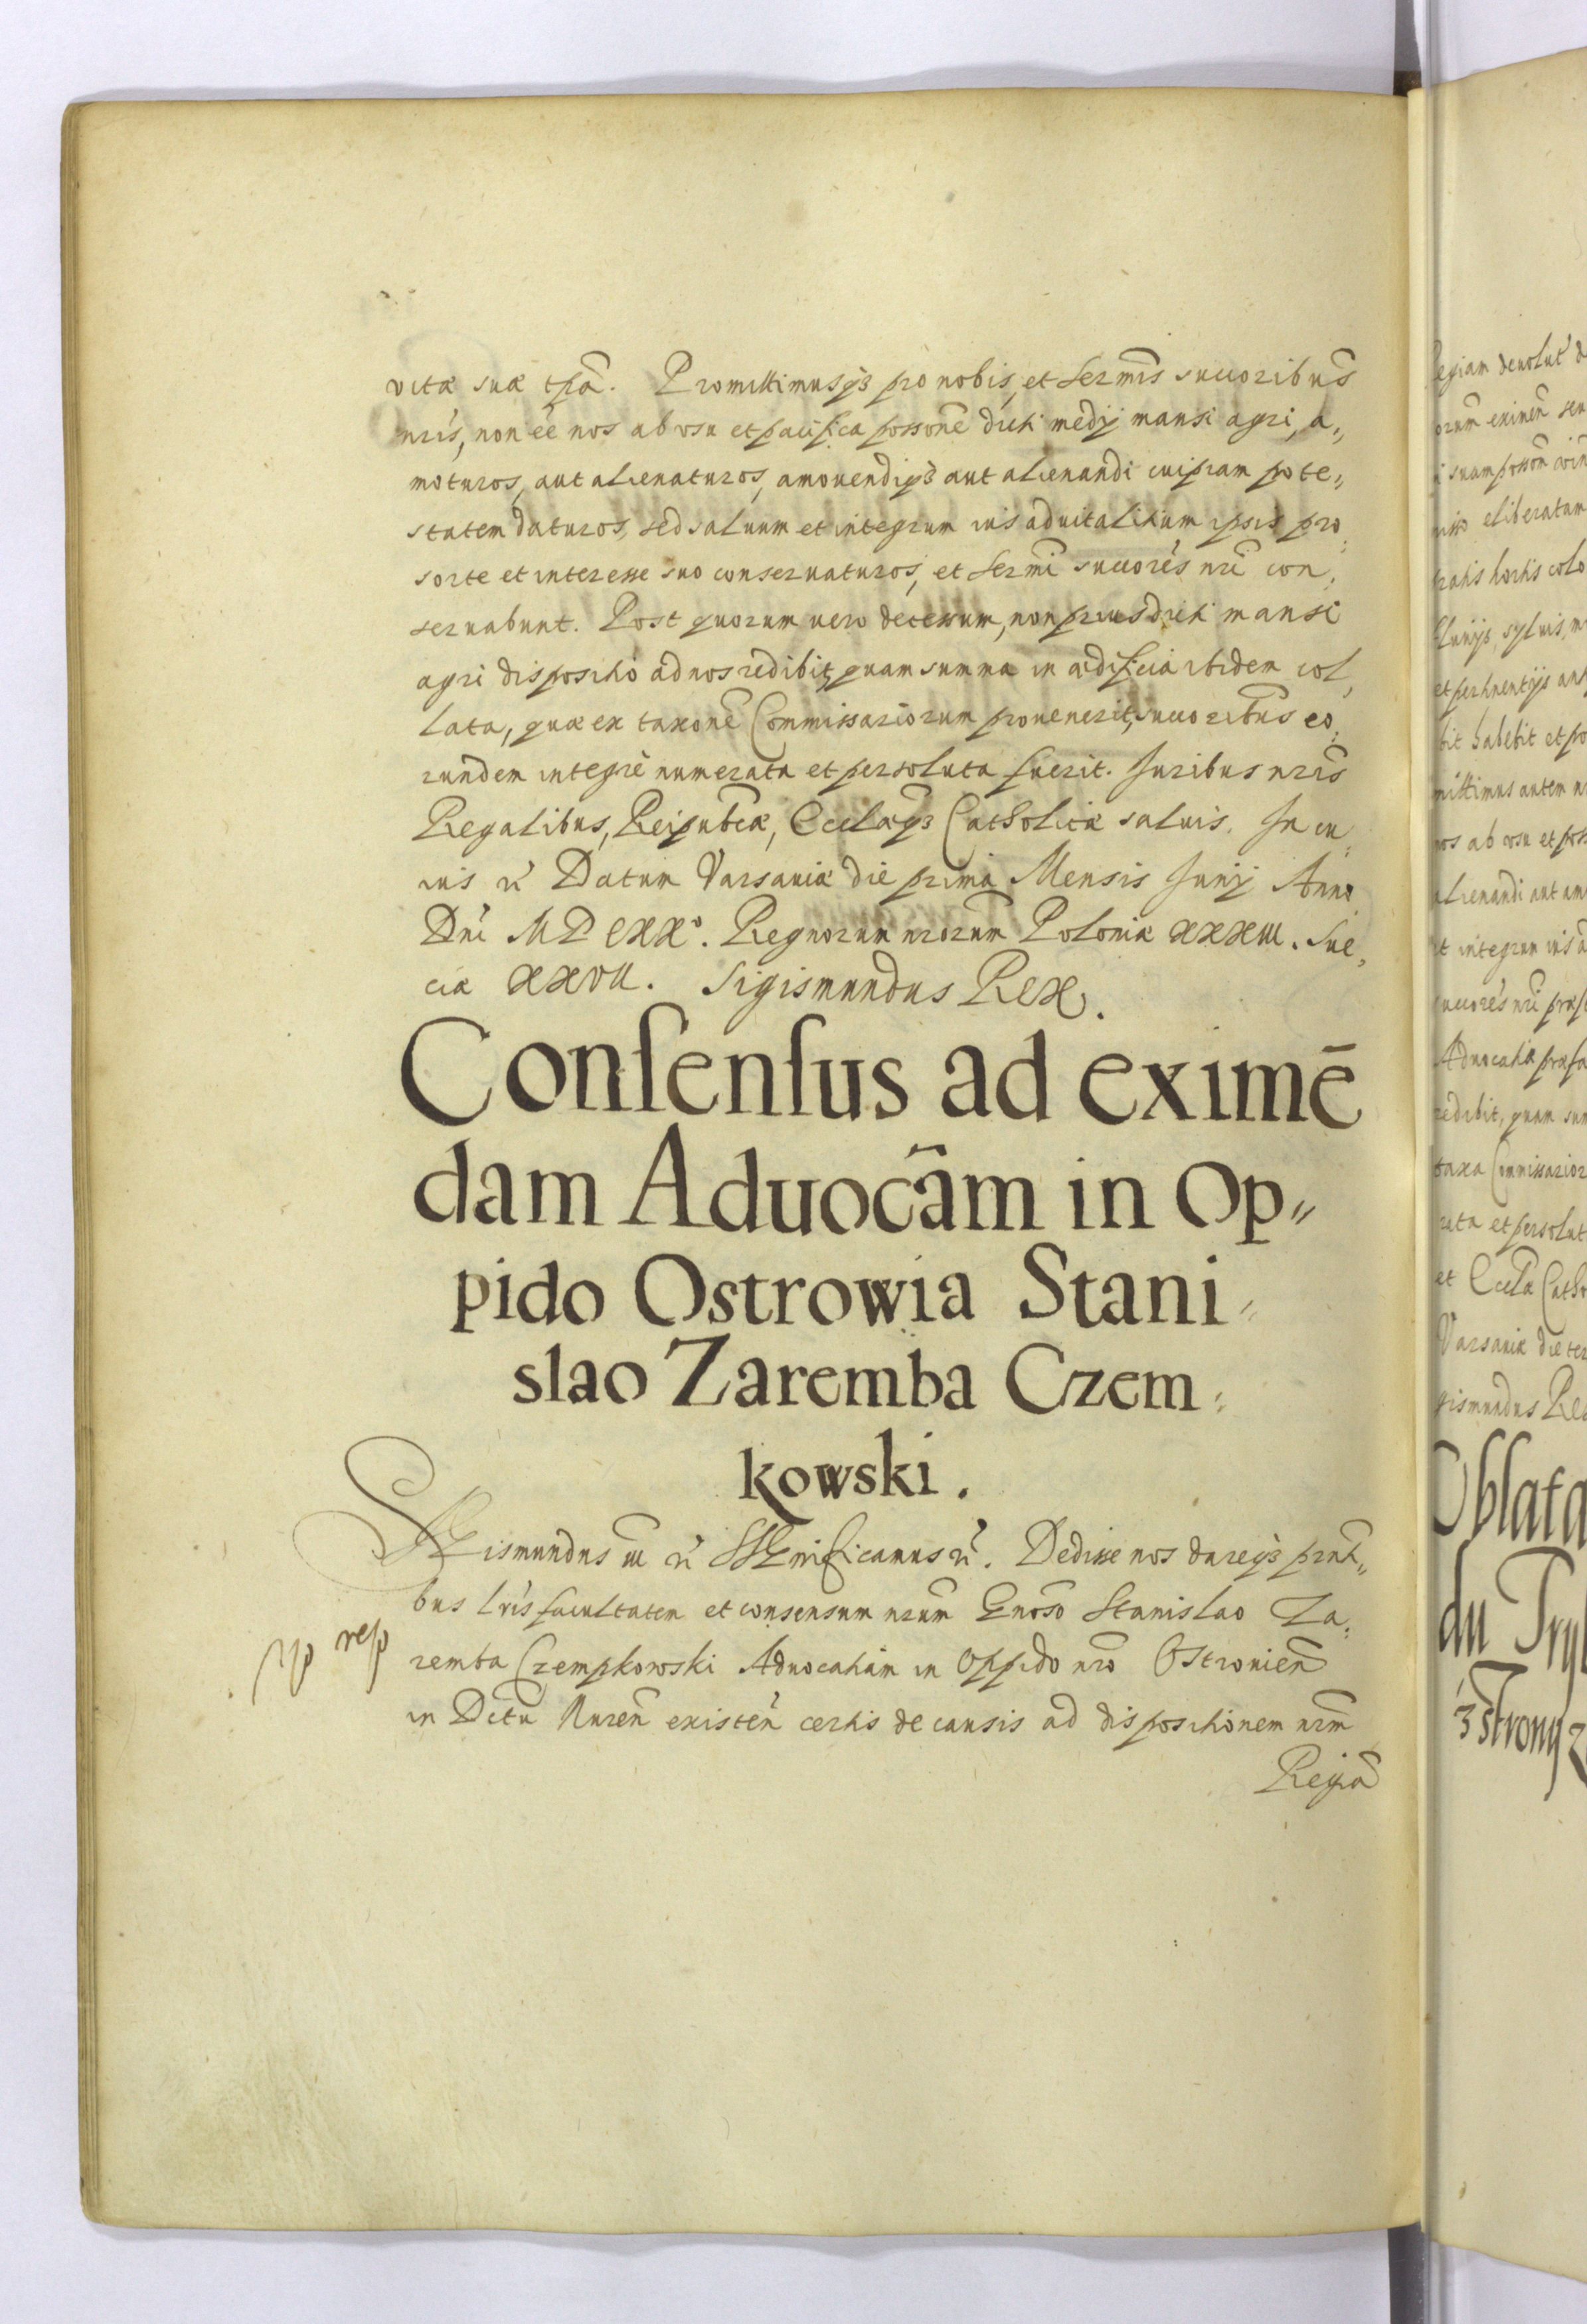 vitæ suæ tpã. Promittimusqȝ pro nobis, et Serm̃is succoribus̃
nr̃is, non eẽ nos ab vsu et pacifica possone͂ dicti medij mansi agri, a„
moturos, aut alienaturos, amouendiqȝ aut alienandi cuipiam pote„
statem daturos, sed saluum et integrum ius aduitalitium ipsis pro„
sorte et interesse suo conseruaturos, et Serm̃i succorẽs nr̃i con„
seruabunt. Post quorum uero decessum, non prius dicti mansi
agri dispositio ad nos redibit, quam summa in ædificia ibidem col„
lata, quæ ex taxonẽ Commissariorum prouenerit, succoribus̃ eo„
rundem integrè numerata et persoluta fuerit. Juribus nr̃is
Regalibus, Reipubcæ̃, Ecclæqȝ̃ Catholicæ saluis. In cu„
ius rẽ Datum Varsauiæ die prima Mensis Junij Anno
Dni͂ MDCXXᵒ. Regnorum nrorum͂ Poloniæ XXXIII. Sue„
ciæ XXVII. Sigismundus Rex.
Conſenſus ad eximē
dam Aduocãm in Op„
pido Ostrowia Stani„
slao Zaremba Czem„
kowski.
SIGismundus III rẽ SIGnificamus rẽ. Dedisse nos dareqȝ pr̃nti„
bus lr̃is facultatem et consensum nrum͂ Gnoso͂ Stanislao Za„
remba Czempkowski Aduocatiam in Oppido nrõ Ostrouien͂
in Dctu͂ Nuren͂ existen͂ certis de causis ad dispositionem nrm͂
Regia͂
egiam deuolut d
orum eximen͂ seu
suam posson͂
eliberatam
ratis hortis colo
syluis, m
et pertinentijs
bit habebit et po
mittimus autem n
os ab vsu et poss
alienandi aut am
et integrum ius a
succorẽs nr̃i
Aduocatiæ præfa
redibit, quam sum
taxa Commissarior
rata et persolut
et Eccla͂ Catho
Varsauiæ die ter
gismundus Rex
Oblata
du Tryb
z strony z